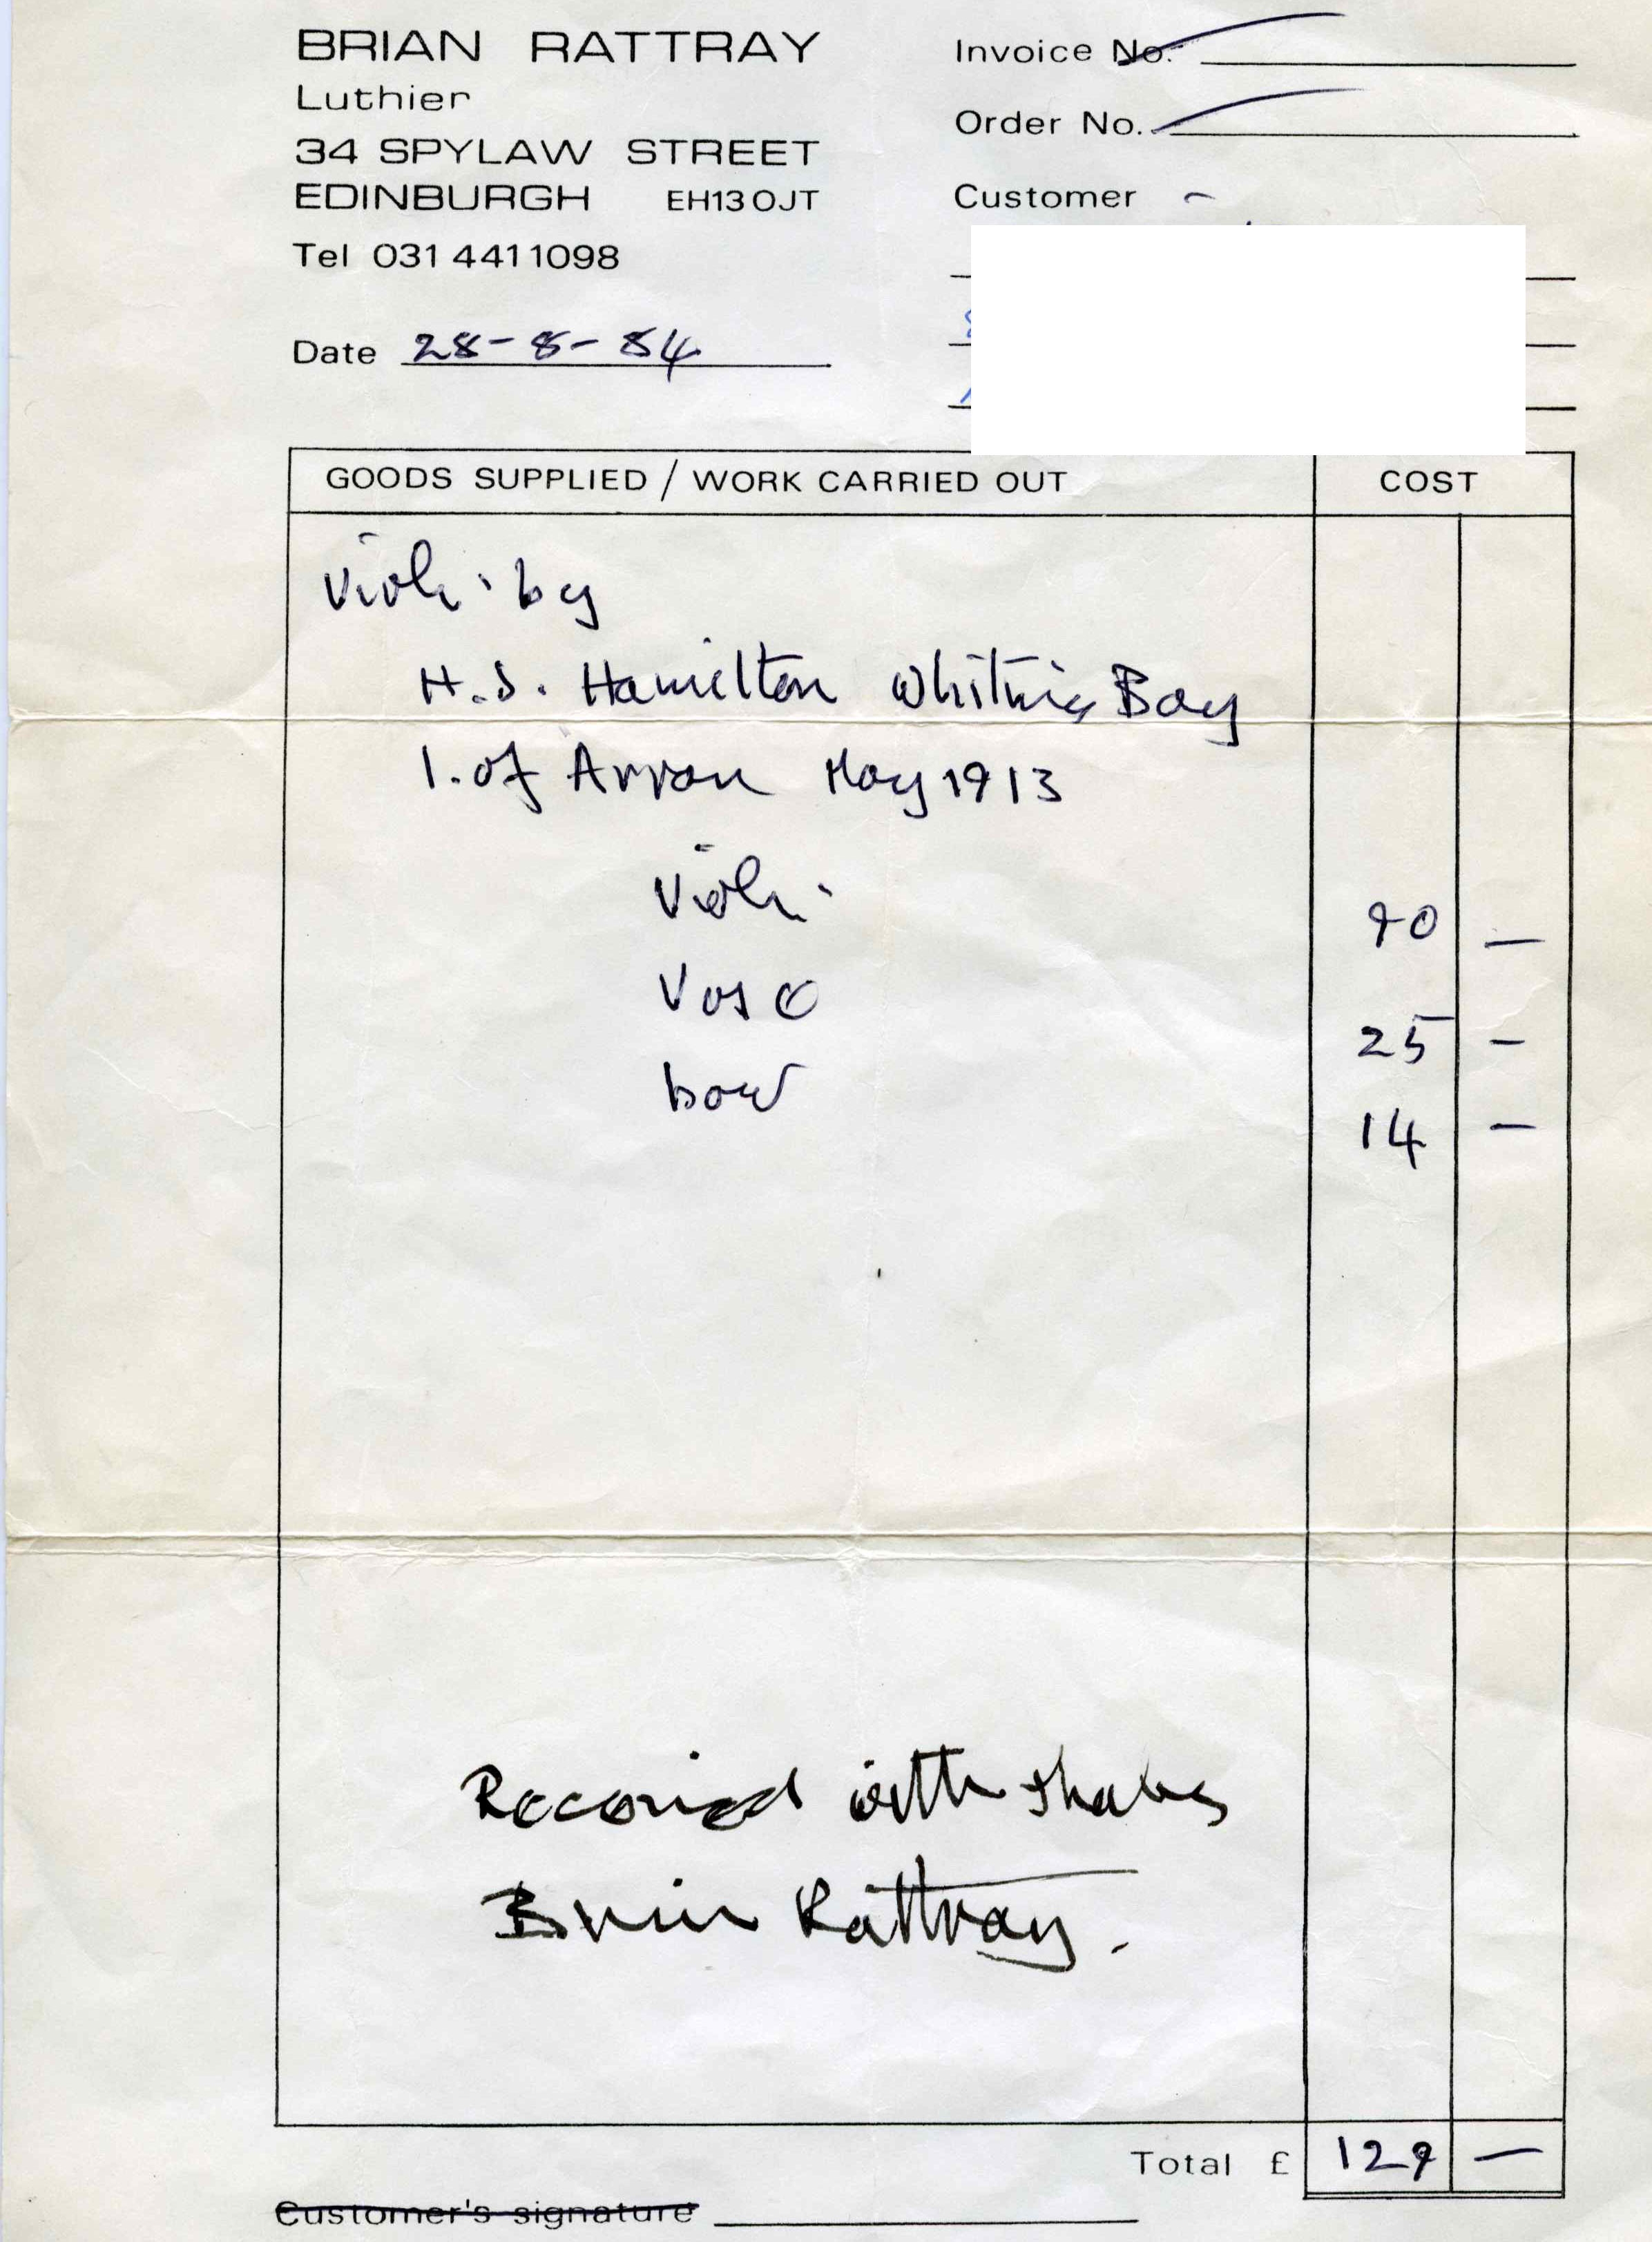 BRIAN RATTRAY
Luthier
34 SPYLAW STREET
EDINBURGH EH13 0JT
Tel 031 441 1098
Date 28-8-84
Invoice No.
Order No.
Customer
GOODS SUPPLIED / WORK CARRIED OUT COST
Violin by
H.S. Hamilton Whiting Bay
I. of Arran May 1913
Violin 90 —
25 —
bow 14 —
Received with thanks
Brian Rattray.
Total £ 129 —
Customer's signature